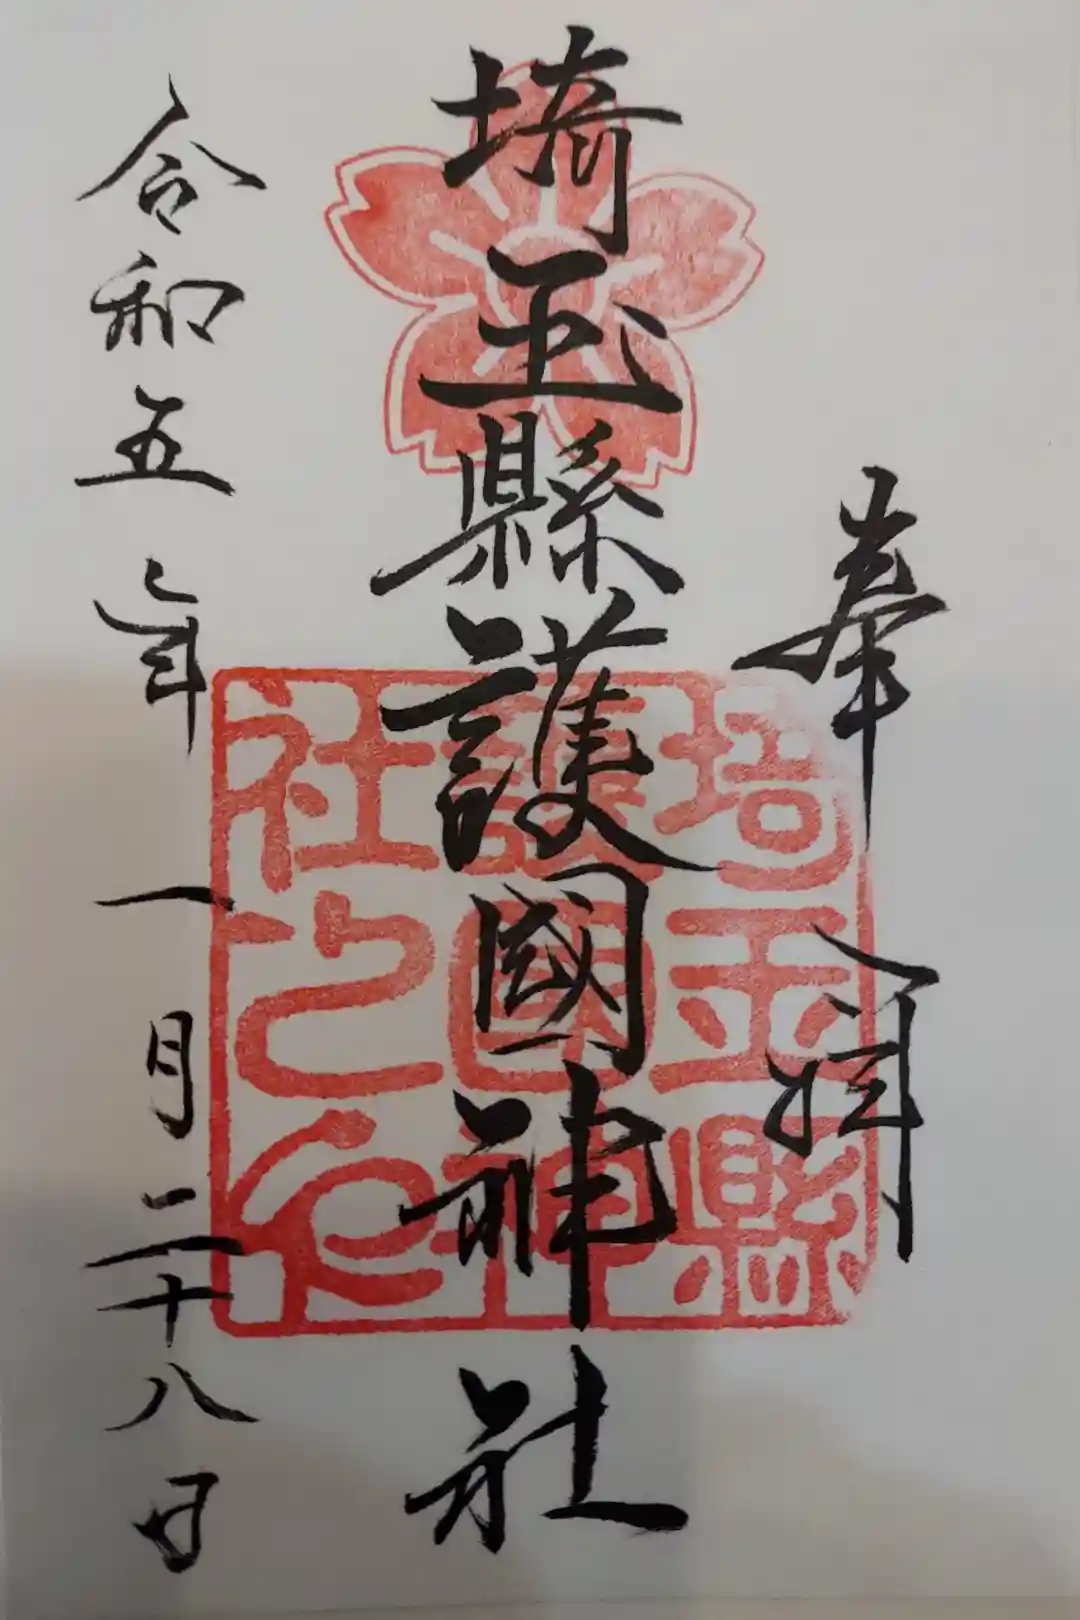 奉拝
埼玉縣護國神社
令和五年一月二十八日
埼玉縣
護國神
社之印